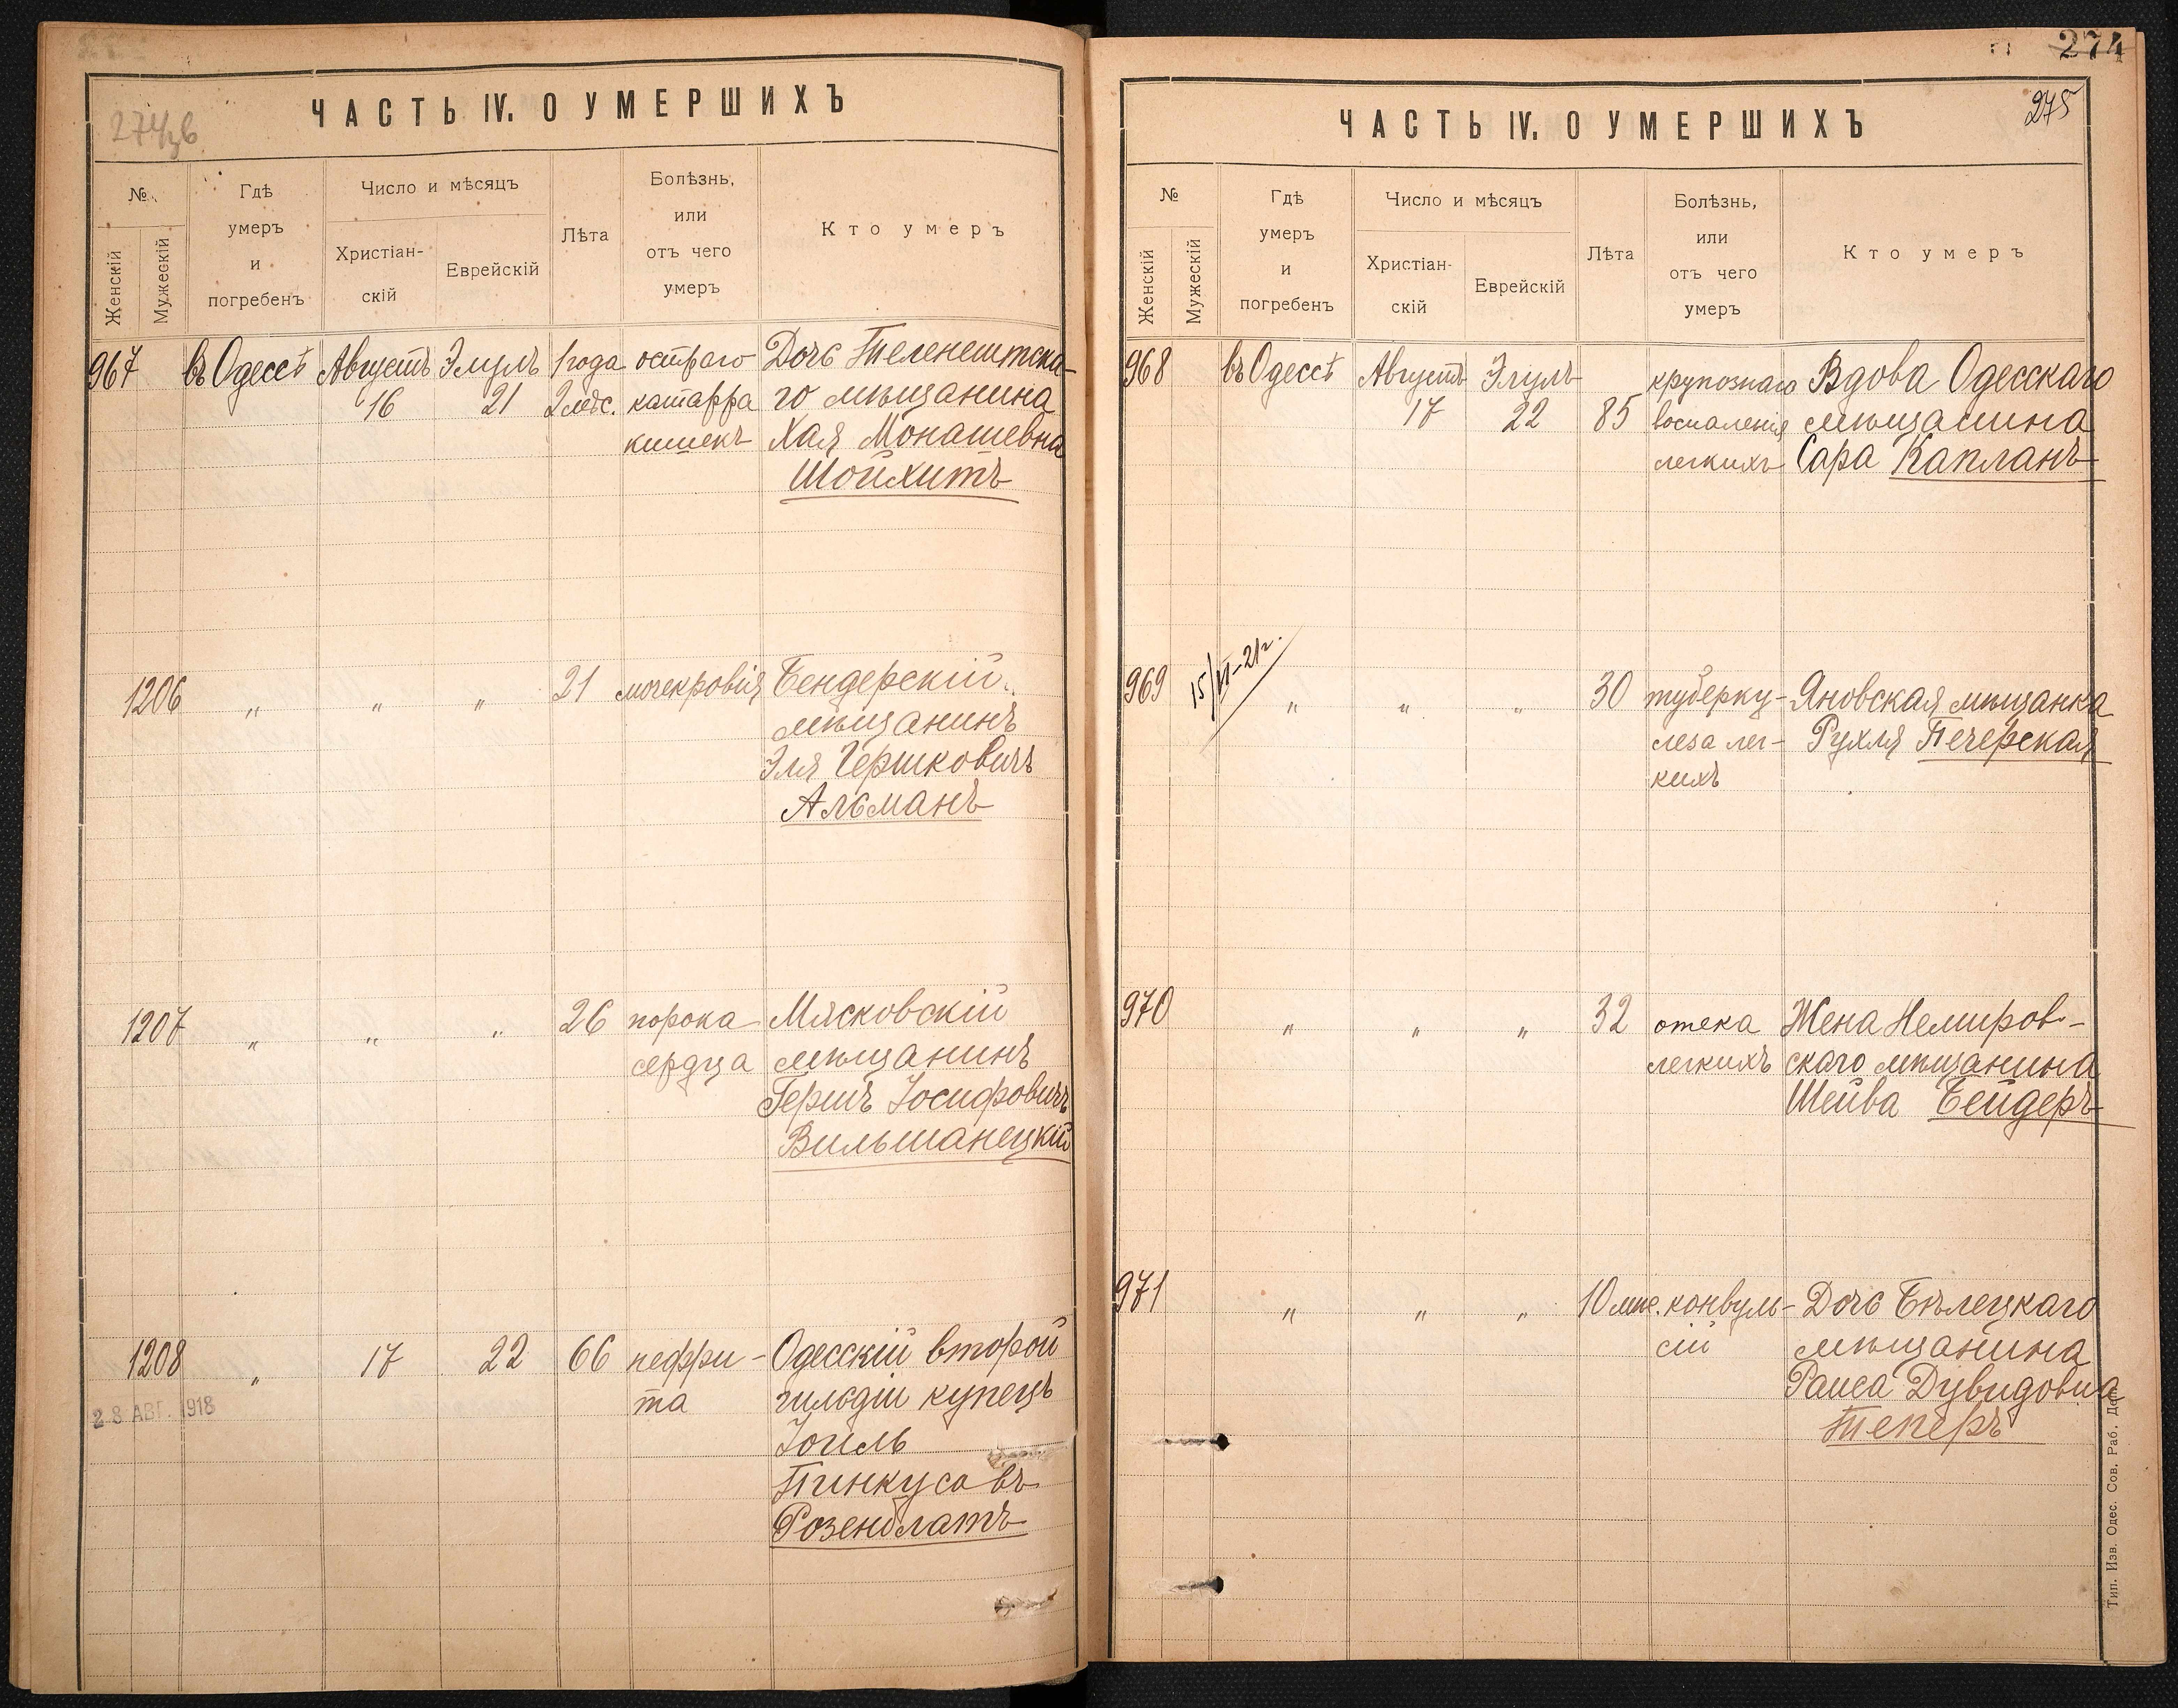 274об
ЧАСТЬ IV. О УМЕРШИХЪ
№
Женскій
Мужескій
Гдѣ
умеръ
и
погребенъ
Число и мѣсяцъ
Христіан-
скій
Еврейскій
Лѣта
Болѣзнь,
или
отъ чего
умеръ
Кто умеръ
967 въ Одессѣ Августъ Элулъ 1 года остраго Дочь Теленештска-
16 21 2 мѣс. катарра го мѣщанина
кишекъ Хая Монашевна
Шойхитъ
1206 " " " 21 мочекровія Бендерскій
мѣщанинъ
Эля Гершковичъ
Альманъ
1207 " " " 26 порока Мясковскій
сердца мѣщанинъ
Гершъ Іосифовичъ
Вильшанецкій
1208 " 17 22 66 нефри- Одесскій второй
28 АВГ. 1918 та гильдіи купецъ
Іоиль
Пинкусовъ
Розенблатъ
274
275
ЧАСТЬ IV. О УМЕРШИХЪ
№
Женскій
Мужескій
Гдѣ
умеръ
и
погребенъ
Число и мѣсяцъ
Христіан-
скій
Еврейскій
Лѣта
Болѣзнь,
или
отъ чего
умеръ
Кто умеръ
968 въ Одессѣ Августъ Элулъ крупознаго Вдова Одесскаго
17 22 85 воспаленія мѣщанина
легкихъ Сара Капланъ
969 " " " 30 туберку- Яновская мѣщанка
леза лег- Рухля Печерская
кихъ
970 " " " 32 отека Жена Немиров-
легкихъ скаго мѣщанина
Шейва Бейдеръ
971 " " " 10 мѣс. конвуль- Дочь Бѣлецкаго
сій мѣщанина
Раиса Дувидовна
Теперъ
Тип. Изв. Одес. Сов. Раб. Деп.